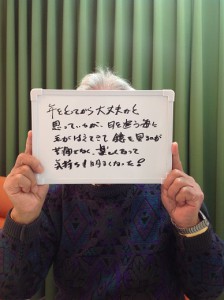 年をとってから大丈夫かと
思っていたが、日を追う毎に
毛がはえてきて鏡を見るのが
苦痛でなく、楽しくなって
気持ちも明るくなった!